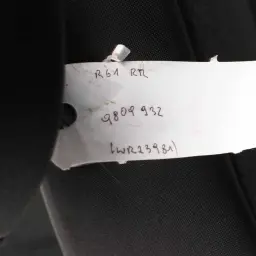 R61 RR
9809 932
(WR23981)